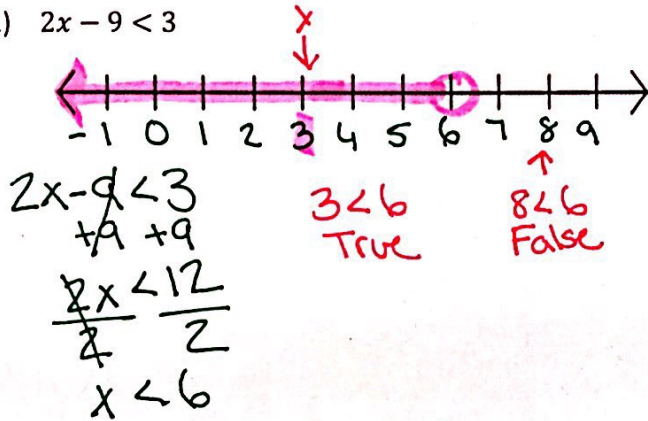 ) 2x − 9 < 3
x
-1 0 1 2 3 4 5 6 7 8 9
2x-9<3
+9 +9
2x<12
2 2
x<6
3<6
True
8<6
False